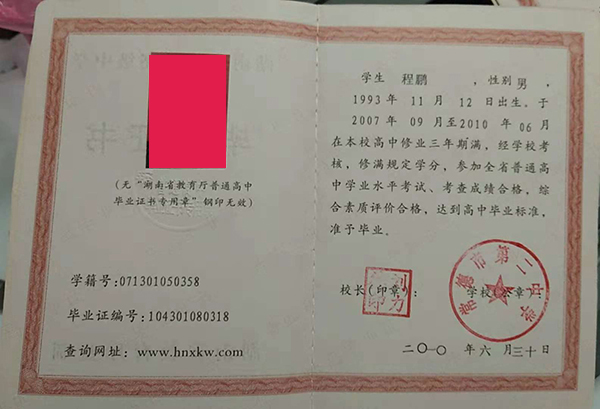 (无“湖南省教育厅普通高中
毕业证书专用章”钢印无效)
学籍号:071301050358
毕业证编号:104301080318
查询网址: www.hnxkw.com
学生 程鹏 ,性别 男 ,
1993 年 11 月 12 日出生。于
2007 年 09 月至 2010 年 06 月
在本校高中修业三年期满,经学校考
核,修满规定学分,参加全省普通高
中学业水平考试、考查成绩合格,综
合素质评价合格,达到高中毕业标准,
准予毕业。
常德市第二中学
校长(印章): 学校(公章):
二〇一〇 年 六 月 三十 日